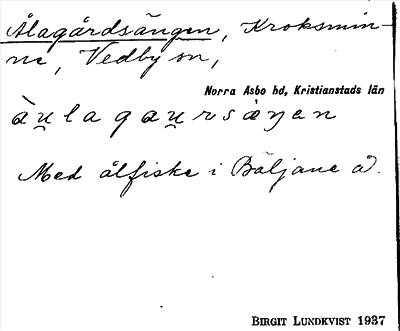 Ålagårdsängen, Kroksmin-
ne, Vedby sn,
Norra Åsbo hd, Kristianstads län
àu̯lagau̯rsàŋen
Med ålfiske i Bäljane å.
BIRGIT LUNDKVIST 1937